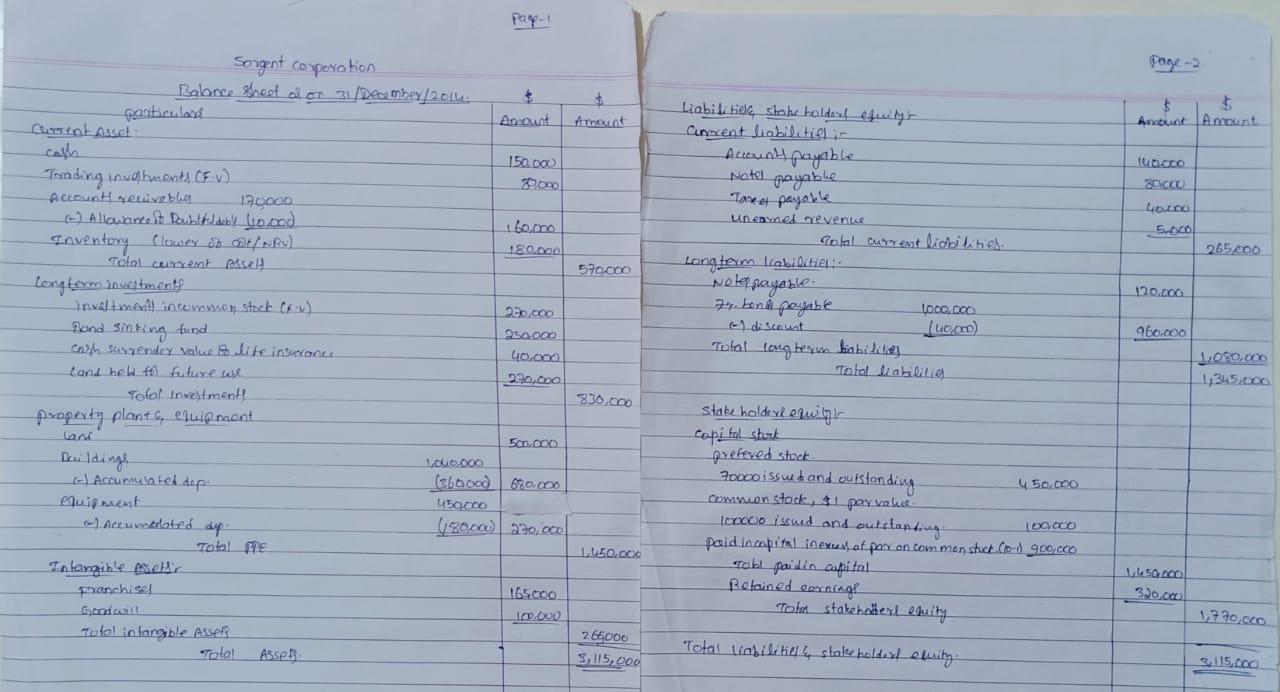 Page-1
Sorgent corporation
Balance Sheet as on 31/December/2014.
particulars $ Amount $ Amount
Current Asset.
cash 150,000
Trading investments (F.V) 80,000
Accounts recivables 170,000
(-) Allowance to Doubtful debts (10,000) 160,000
Inventory (lower of cost/NRV) 180,000
Total current Assets 570,000
Long term investments
investments in common stock (F.V) 270,000
Bond sinking fund 250,000
cash surrender value of life insurance 40,000
Land held for future use 270,000
Total investments 830,000
property plant & equipment
Land 500,000
Buildings 1,040,000
(-) Accumulated dep. (360,000) 680,000
equipment 450,000
(-) Accumulated dep. (180,000) 270,000
Total PPE 1,450,000
Intangible assets:-
franchises 165000
Goodwill 100,000
Total intangible Assets 265000
Total Assets. 3,115,000
Page-2.
Liabilities & stakeholders equity:- $ Amount $ Amount
Current liabilities:-
Accounts payable 140,000
Notes payable 80,000
Taxes payable 40,000
unearned revenue 5,000
Total current liabilities. 265,000
Long term liabilities:-
Notes payable. 120,000
7% bonds payable 1,000,000
(-) discount (40,000) 960,000
Total long term liabilities 1,080,000
Total liabilities 1,345,000
Stakeholders equity:-
Capital stock
prefered stock.
70000 issued and outstanding 450,000
common stock, $1 par value.
100000 issued and outstanding. 100,000
paid in capital in excess of par on common stock.(10-1) 900,000
Total paid in capital 1,450,000
Retained earnings 320,000
Total stakeholders equity 1,770,000
Total liabilities & stakeholders equity. 3,115,000